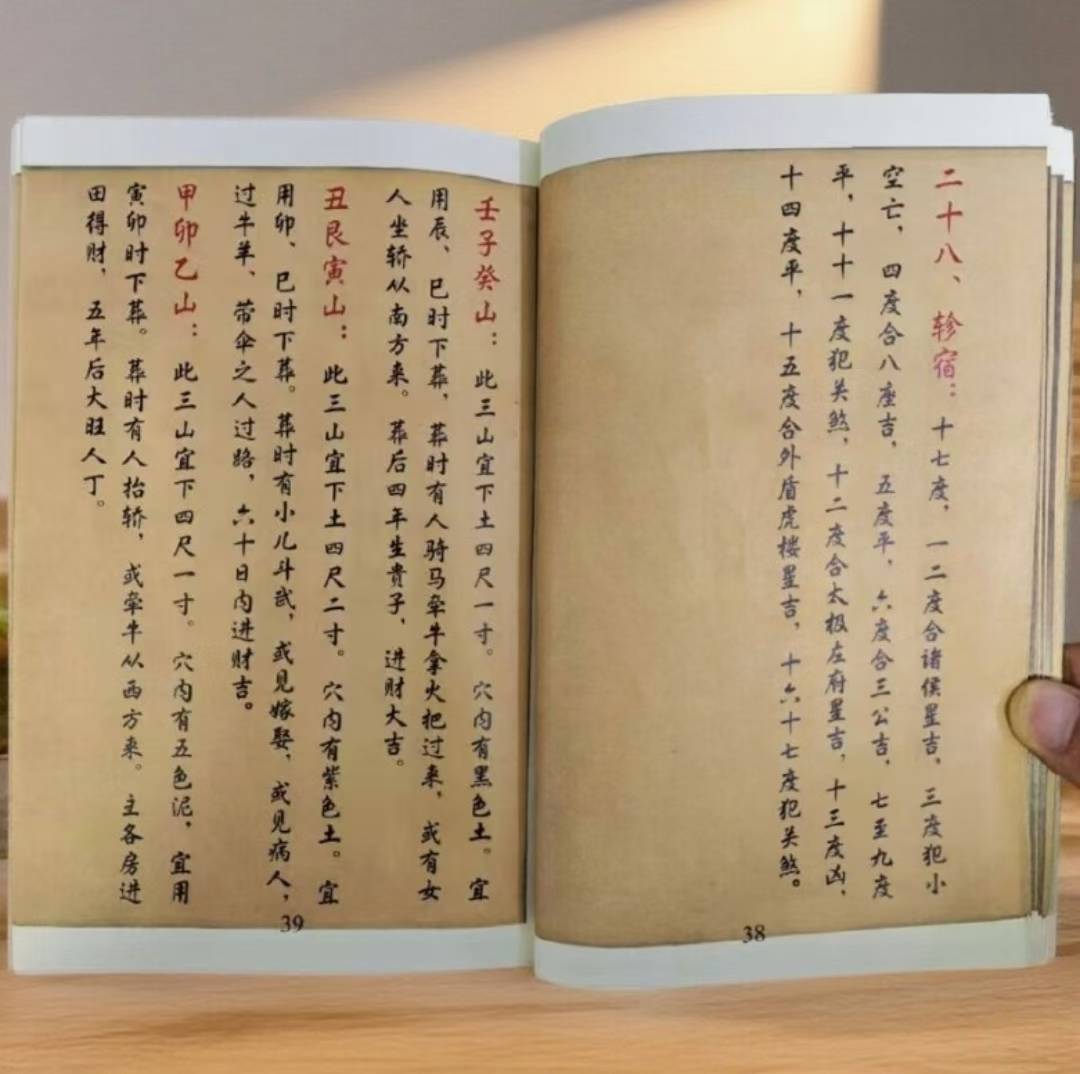 二十八、轸宿：十七度，一二度合诸侯星吉，三度犯小
空亡，四度合八座吉，五度平，六度合三公吉，七至九度
平，十十一度犯关煞，十二度合太极左府星吉，十三度凶，
十四度平，十五度合外盾虎楼星吉，十六十七度犯关煞。
38
壬子癸山：此三山宜下土四尺一寸。穴内有黑色土。宜
用辰、巳时下葬，葬时有人骑马牵牛拿火把过来，或有女
人坐轿从南方来。葬后四年生贵子，进财大吉。
丑艮寅山：此三山宜下土四尺二寸。穴内有紫色土。宜
用卯、巳时下葬。葬时有小儿斗武，或见嫁娶，或见病人，
过牛羊、带伞之人过路，六十日内进财吉。
甲卯乙山：此三山宜下四尺一寸。穴内有五色泥，宜用
寅卯时下葬。葬时有人抬轿，或牵牛从西方来。主各房进
田得财，五年后大旺人丁。
39